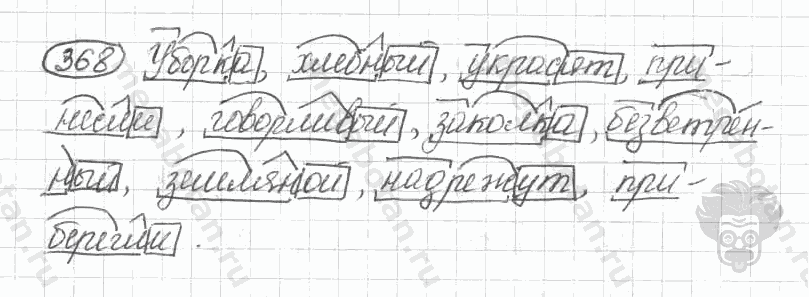 368 Уборка, хлебный, украсят, при-
несли, говорливый, заколка, безветрен-
ный, земляной, надрежут, при-
берегли.